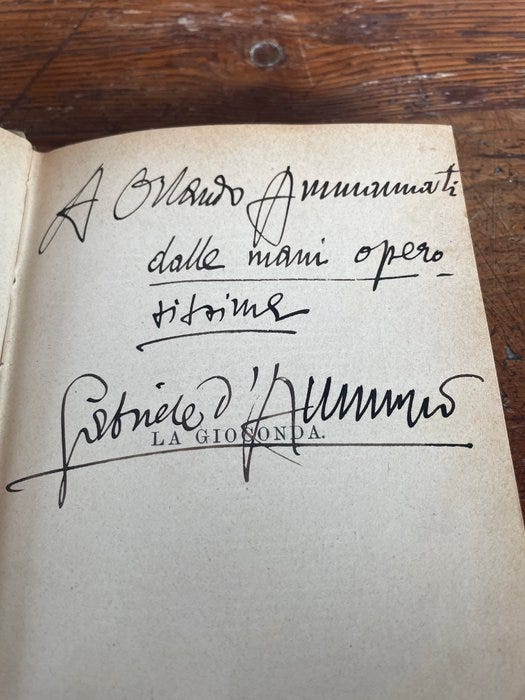 A Orlando Ammannati
dalle mani opero-
sissime
Gabriele d'Annunzio
LA GIOCONDA.